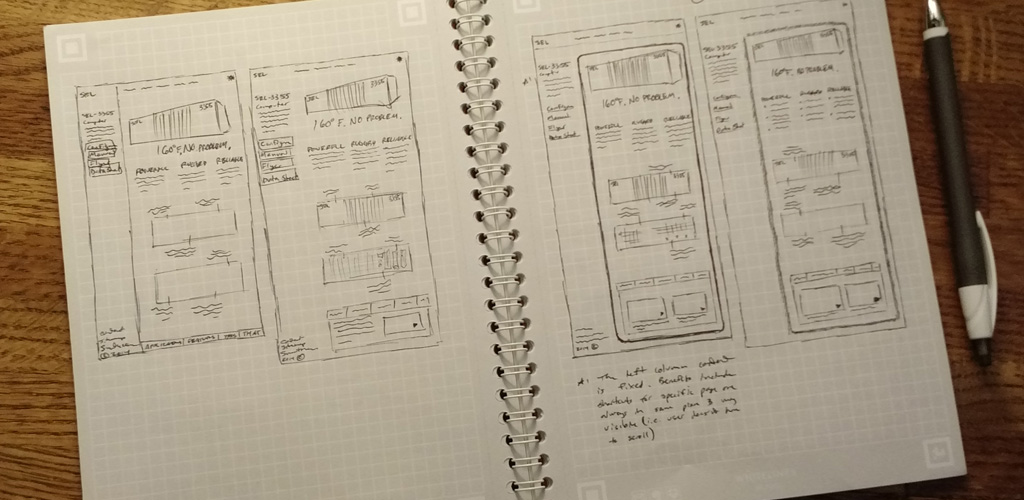 SEL
SEL-3355
Computer
Manual
Flyer
Data Sheet
SEL
3355
160°F, NO PROBLEM.
POWERFUL RUGGED RELIABLE
SEL
SEL-3355
Computer
Configure
Manual
Flyer
Data Sheet
SEL
3355
160°F, NO PROBLEM.
POWERFUL RUGGED RELIABLE
SEL
3355
SEL
SEL-3355
Configure
Manual
Flyer
Data Sheet
SEL
3355
160°F, NO PROBLEM.
POWERFUL RUGGED RELIABLE
SEL
3355
SEL-3355
Computer
Manual
Flyer
Data Sheet
SEL
3355
160°F, NO PROBLEM.
POWERFUL RUGGED RELIABLE
SEL
3355
#1 The left column content
is fixed. Benefits include
shortcuts for specific page are
always in same place &
visible (i.e. user doesn't have
to scroll)